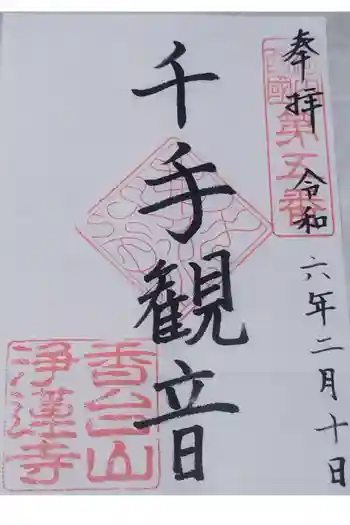 奉拝 令和六年二月十日
第五番
千手観音
香台山
浄蓮寺